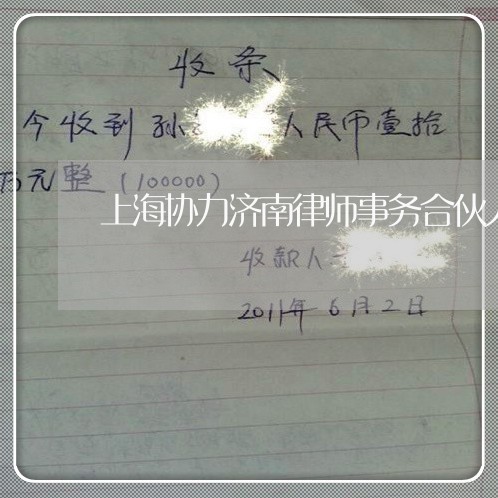 收条
今收到孙 人民币壹拾
万元整(100000)
上海协力济南律师事务合伙人
收款人
2011年6月2日